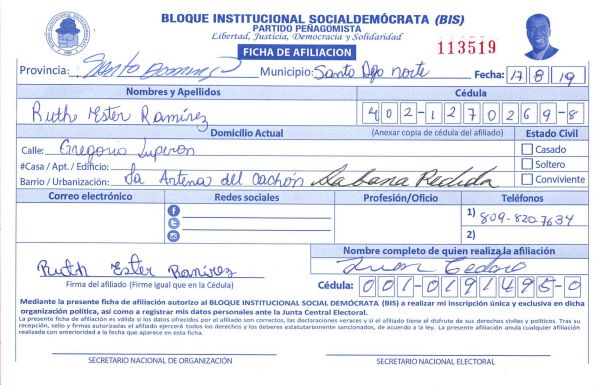 BLOQUE INSTITUCIONAL SOCIALDEMÓCRATA (BIS)
PARTIDO PEÑAGOMISTA
Libertad, Justicia, Democracia y Solidaridad
FICHA DE AFILIACION
113519
Provincia: Santo Domingo Municipio: Santo Dgo norte Fecha: 17 8 19
Nombres y Apellidos Cédula
Ruthe Ester Ramírez 402-1270269-8
Domicilio Actual (Anexar copia de cédula del afiliado) Estado Civil
Calle: Gregorio Luperon Casado
#Casa / Apt. / Edificio: Soltero
Barrio / Urbanización: La Antena del Cachón Sabana Perdida Conviviente
Correo electrónico Redes sociales Profesión/Oficio Teléfonos
1) 809-820-7634
2)
Nombre completo de quien realiza la afiliación
Ruth Ester Ramírez Juan Cedano
Firma del afiliado (Firme igual que en la Cédula) Cédula: 001-0191495-0
Mediante la presente ficha de afiliación autorizo al BLOQUE INSTITUCIONAL SOCIAL DEMÓCRATA (BIS) a realizar mi inscripción única y exclusiva en dicha
organización política, así como a registrar mis datos personales ante la Junta Central Electoral.
La presente ficha de afiliación es válida si los datos ofrecidos por el afiliado son correctos, las declaraciones veraces y si el afiliado tiene el disfrute de sus derechos civiles y políticos. Tras su
recepción, sello y firmas autorizadas el afiliado ejercerá todos los derechos y los deberes estatutariamente sancionados, de acuerdo a la ley. La presente afiliación anula cualquier afiliación
realizada con anterioridad a la fecha que aparece en esta ficha.
SECRETARIO NACIONAL DE ORGANIZACIÓN SECRETARIO NACIONAL ELECTORAL